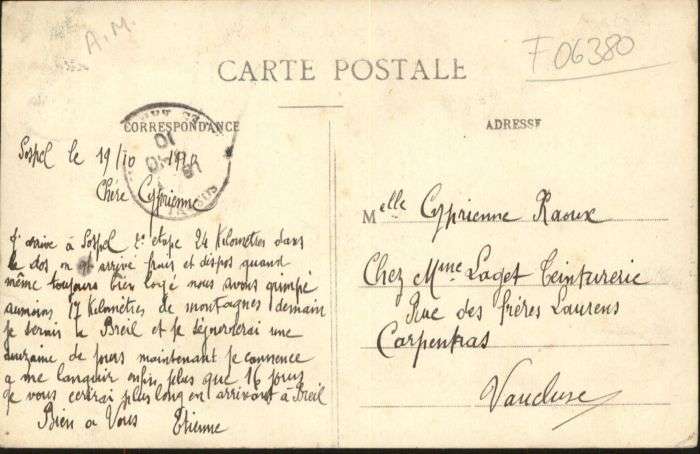 A.M.
F 06380
CARTE POSTALE
CORRESPONDANCE
ADRESSE
Sospel le 19/10 1910
Chère Cyprienne
J'arrive à Sospel 2e etape 24 Kilometres dans
le dos on et arrivé frais et dispos quand
même toujours bien logé nous avons grimpé
aumoins 17 Kilomètres de montagnes demain
je serais à Breil et je séjornerai une
quinzaine de jours maintenant je comence
a me languir enfin plus que 16 jours
Je vous ecrirai plus long en arrivant à Breil
Bien a Vous Etienne
Melle Cyprienne Raoux
Chez Mme Laget Teinturerie
Rue des frères Laurens
Carpentras
Vaucluse